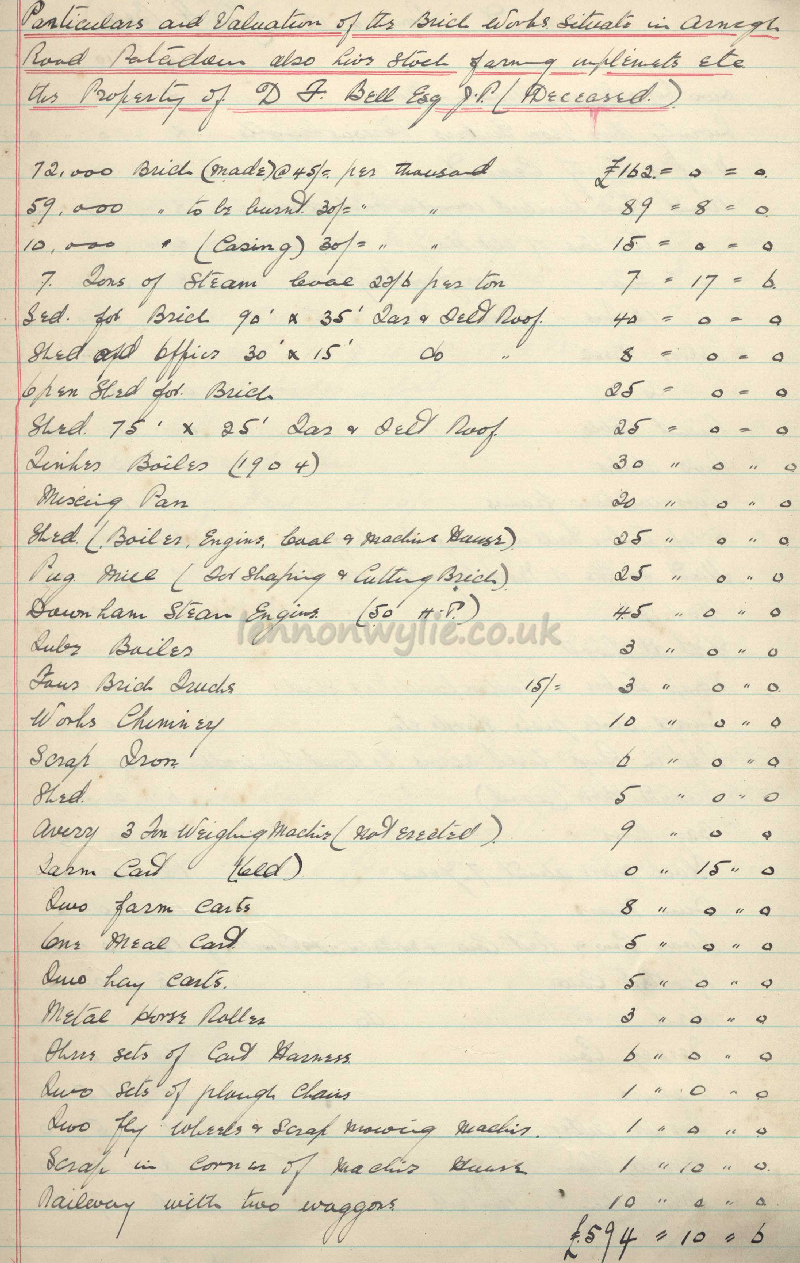 Particulars and Valuation of the Brick Works Situate in Armagh
Road Portadown also Live Stock farming implemets etc
the Property of D F. Bell Esq J.P. (Deceased.)
72,000 Brick (Made) @ 45/= per thousand £162 = 0 = 0
59,000 " to be burnt 30/= " " 89 = 8 = 0
10,000 " (Casing) 30/= " " 15 = 0 = 0
7. Tons of Steam Coal 22/6 per ton 7 = 17 = 6
Sed. for Brick 90' x 35' Tar & Felt Roof. 40 = 0 = 0
Shed and Office 30' x 15' do " 8 = 0 = 0
Open Shed for Brick 25 = 0 = 0
Shed. 75' x 25' Tar & Felt Roof 25 = 0 = 0
Boiler (1904) 30 " 0 " 0
Mixing Pan 20 " 0 " 0
Shed. (Boiler, Engine, Coal & Machine House) 25 " 0 " 0
Pug Mill (For Shaping & Cutting Brick) 25 " 0 " 0
Downham Steam Engine (50 H.P.) 45 " 0 " 0
Tube Boiler 3 " 0 " 0
Four Brick Trucks 15/= 3 " 0 " 0
Works Chimney 10 " 0 " 0
Scrap Iron 6 " 0 " 0
Shed. 5 " 0 " 0
Avery 3 Ton Weighing Machine (Not erected). 9 " 0 0
Farm Cart (Old) 0 " 15 " 0
Two farm carts 8 " 0 " 0
One Meal Cart 5 " 0 " 0
Two hay carts. 5 " 0 " 0
Metal Horse Roller 3 " 0 " 0
Three sets of Cart Harness 6 " 0 " 0
Two sets of plough Chains 1 " 0 " 0
Two fly wheels & Scrap Mowing Machin. 1 " 0 " 0
Scrap in Corner of Machine House 1 " 10 " 0
Railway with two waggons 10 " 0 " 0
£594 " 10 " 6
lennonwylie.co.uk